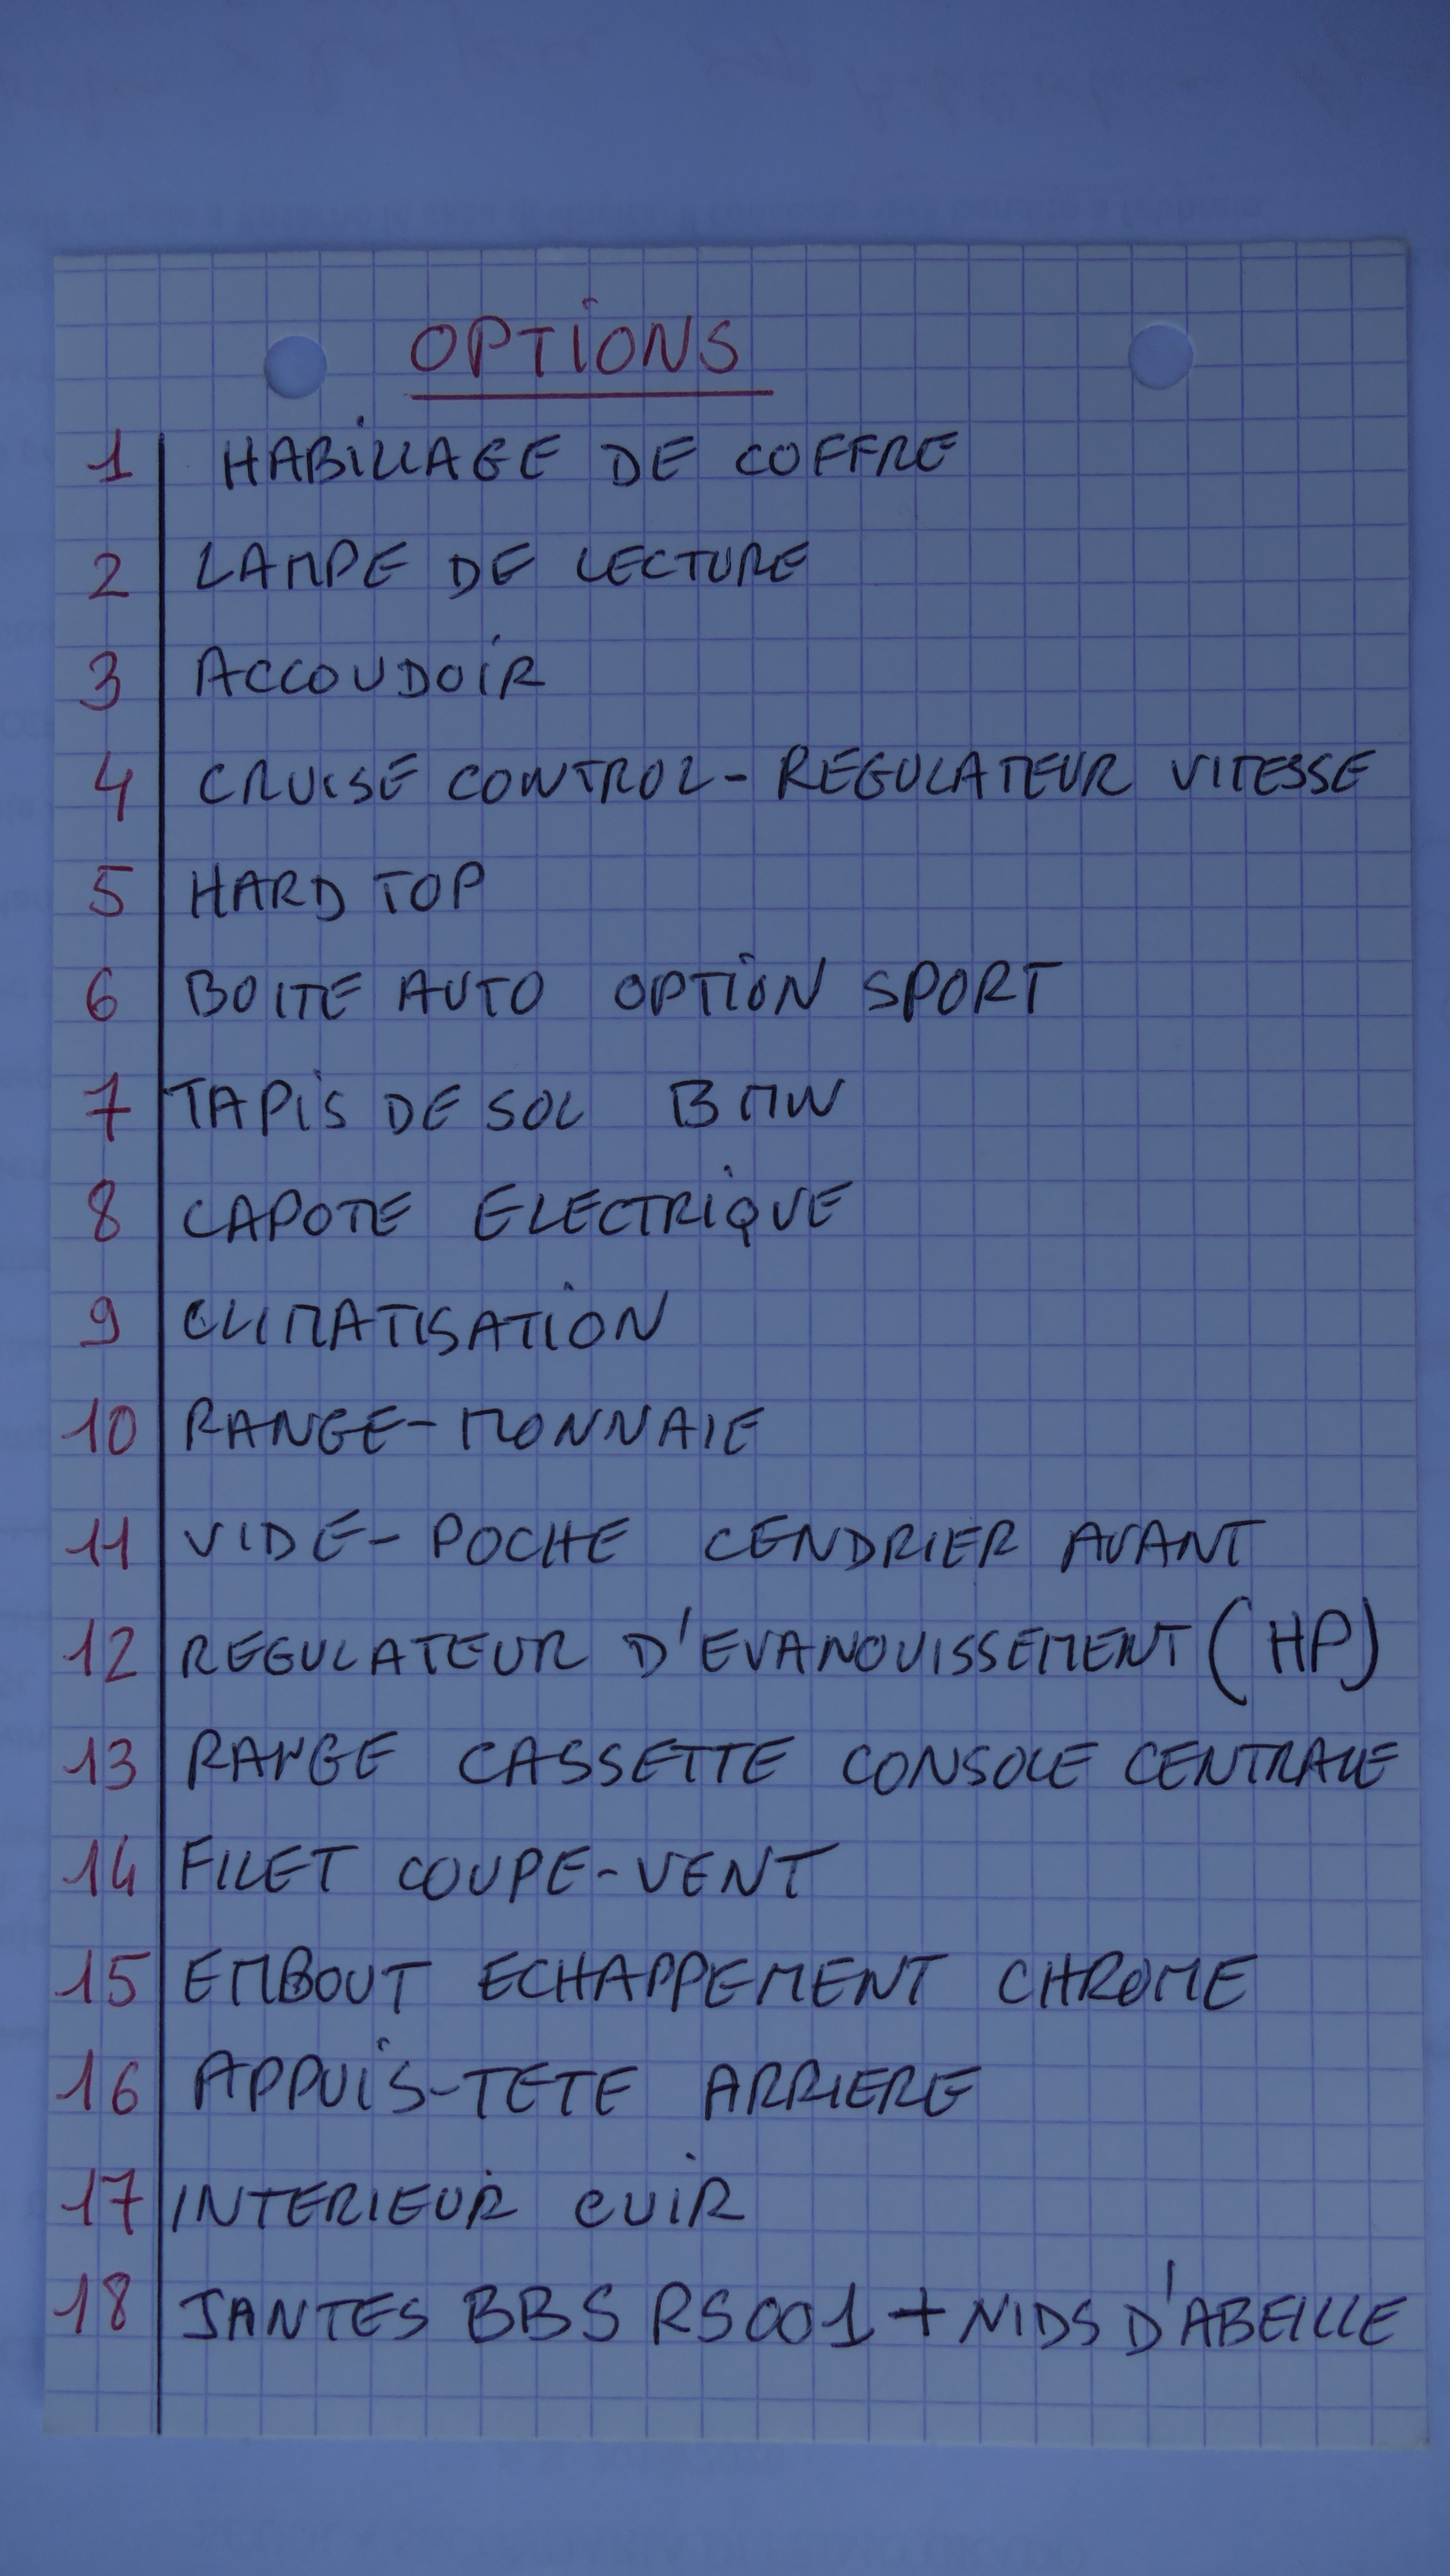 OPTIONS
1 HABILLAGE DE COFFRE
2 LAMPE DE LECTURE
3 ACCOUDOIR
4 CRUISE CONTROL - REGULATEUR VITESSE
5 HARD TOP
6 BOITE AUTO OPTION SPORT
7 TAPIS DE SOL BMW
8 CAPOTE ELECTRIQUE
9 CLIMATISATION
10 RANGE-MONNAIE
11 VIDE-POCHE CENDRIER AVANT
12 REGULATEUR D'EVANOUISSEMENT (HP)
13 RANGE CASSETTE CONSOLE CENTRALE
14 FILET COUPE-VENT
15 EMBOUT ECHAPPEMENT CHROME
16 APPUIS-TETE ARRIERE
17 INTERIEUR CUIR
18 JANTES BBS RS001 + NIDS D'ABEILLE